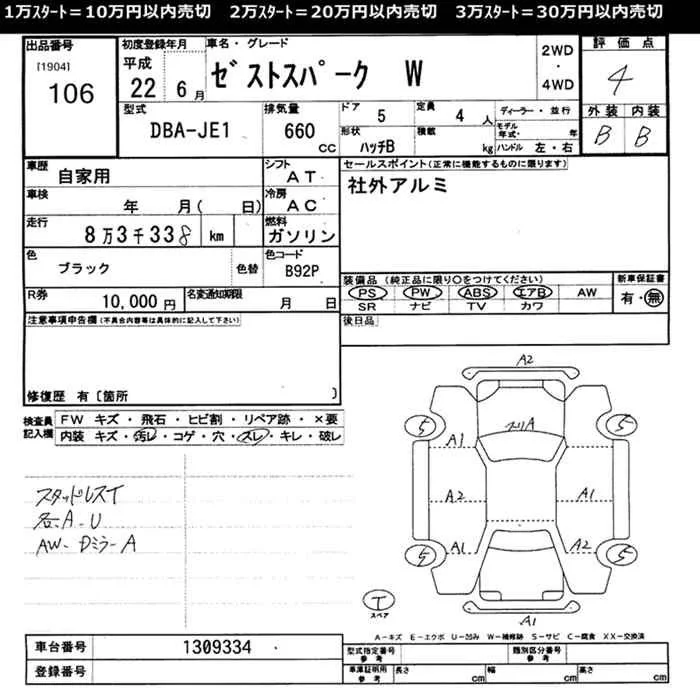 1万ｽﾀｰﾄ＝10万円以内売切　2万ｽﾀｰﾄ＝20万円以内売切　3万ｽﾀｰﾄ＝30万円以内売切
出品番号
[1904]
106
初度登録年月
平成
22 6月
車名・グレード
ゼストスパーク W
2WD
・
4WD
評価点
4
外装 内装
B B
型式
DBA-JE1
排気量
660
cc
ドア
5
定員
4 人
形状
ハッチB
積載
kg
ディーラー・並行
モデル年式・ 年
ハンドル 左・右
車歴
自家用
シフト
AT
車検
年 月( 日)
冷房
AC
走行
8万3千338 km
燃料
ガソリン
色
ブラック
色替
色コード
B92P
R券
10,000円
名変通知期限
月 日
セールスポイント(正常に機能するものに限ります)
社外アルミ
装備品(純正品に限り○をつけてください)
PS PW ABS エアB AW
SR ナビ TV カワ
新車保証書
有・無
後日品
注意事項申告欄(不具合内容等は具体的に記入して下さい)
修復歴 有〔箇所 〕
検査員
記入欄
FW キズ・飛石・ヒビ割・リペア跡・×要
内装 キズ・汚レ・コゲ・穴・スレ・キレ・破レ
スタッドレスT
各A-U
AW-Dミラ-A
A2
5
5
A1
スリA
A2
A1
A1
A2
5
5
T
スペア
A1
A－キズ E－エクボ U－凹み W－補修跡 S－サビ C－腐食 XX－交換済
車台番号
1309334
登録番号
型式指定番号
参考
類別区分番号
参考
車庫証明用
参考
長さ cm
幅 cm
高さ cm